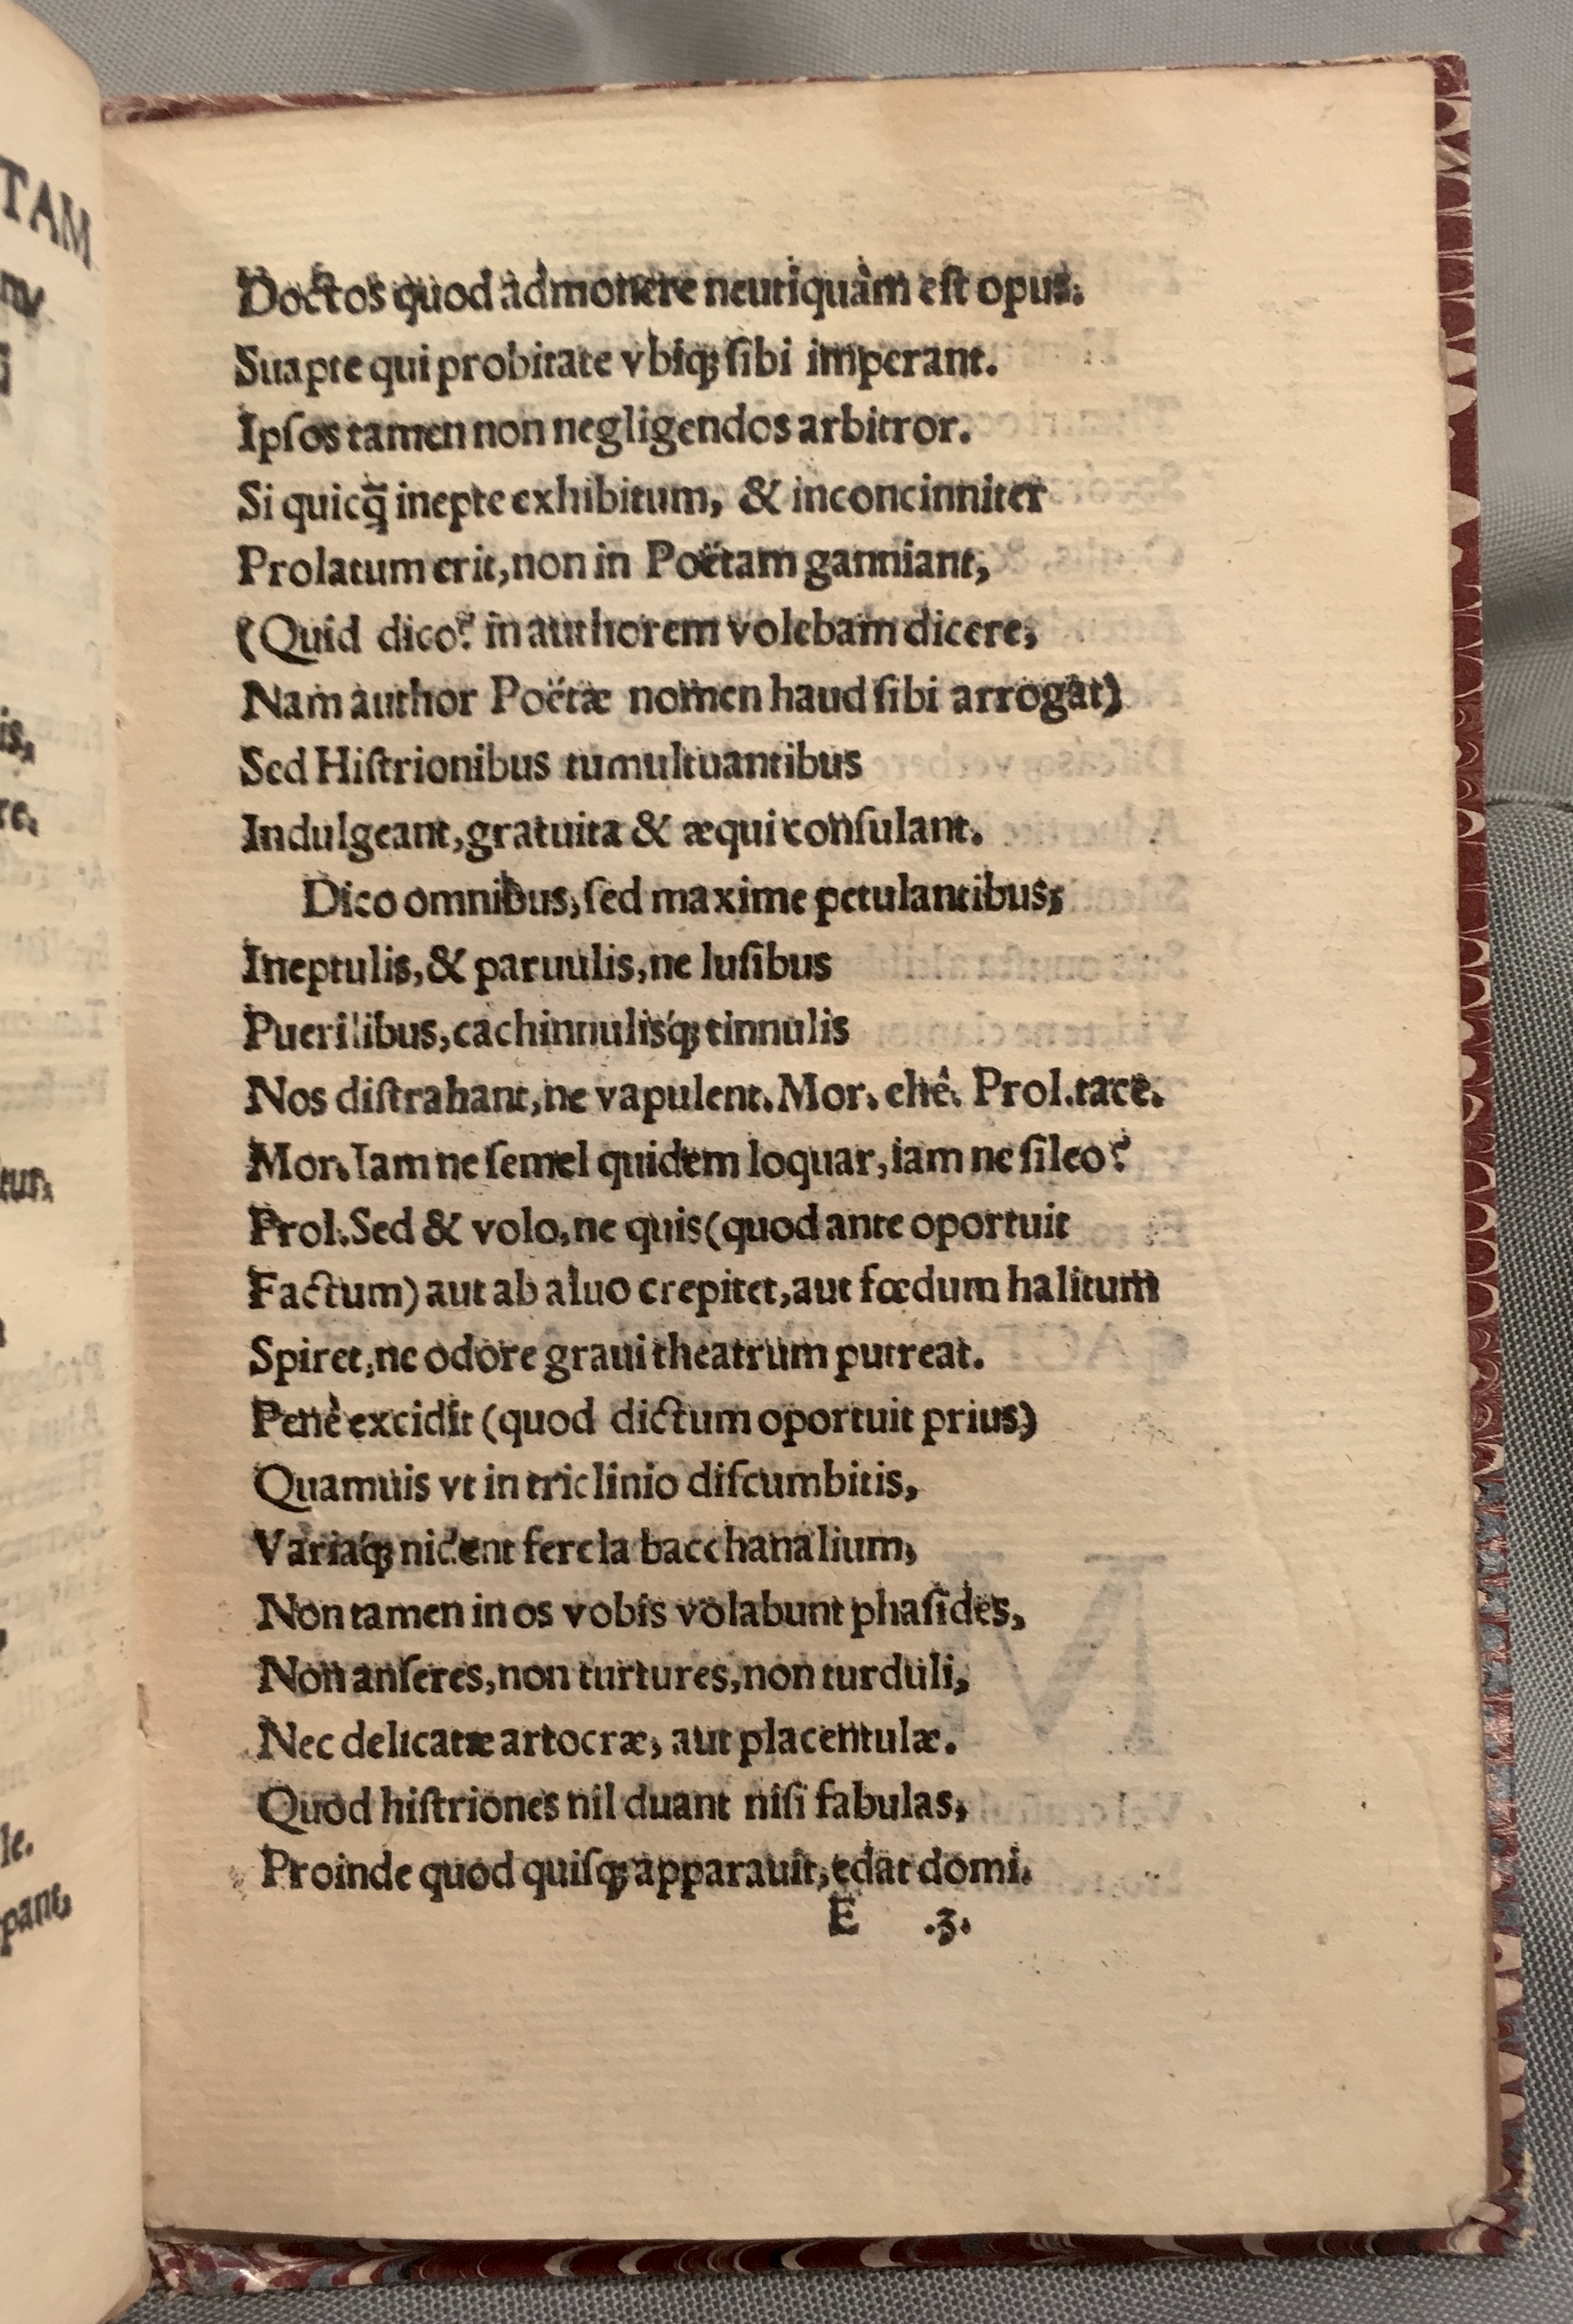 Doctos quod admonere neutiquàm eſt opus.
Suapte qui probitate vbiqꝫ ſibi imperant.
Ipſos tamen non negligendos arbitror.
Si quicq̃ inepte exhibitum, & inconcinniter
Prolatum erit, non in Poëtam ganniant,
(Quid dico? in authorem volebam dicere,
Nam author Poëtæ nomen haud ſibi arrogat)
Sed Hiſtrionibus tumultuantibus
Indulgeant, gratuita & æqui conſulant.
Dico omnibus, ſed maxime petulantibus,
Ineptulis, & paruulis, ne luſibus
Puerilibus, cachinnulisq́ꝫ tinnulis
Nos diſtrahant, ne vapulent. Mor. ehê. Prol. tace.
Mor. Iam ne ſemel quidem loquar, iam ne ſileo?
Prol. Sed & volo, ne quis (quod ante oportuit
Factum) aut ab aluo crepitet, aut fœdum halitum
Spiret, ne odore graui theatrum putreat.
Penè excidit (quod dictum oportuit prius)
Quamuis vt in triclinio diſcumbitis,
Variaq́ꝫ nident fercla bacchanalium,
Non tamen in os vobis volabunt phaſides,
Non anſeres, non turtures, non turduli,
Nec delicatæ artocræ, aut placentulæ.
Quod hiſtriones nil duant niſi fabulas,
Proinde quod quiſqꝫ apparauit, edat domi.
E .3.
TAM
is,
re.
tur.
le.
pant.